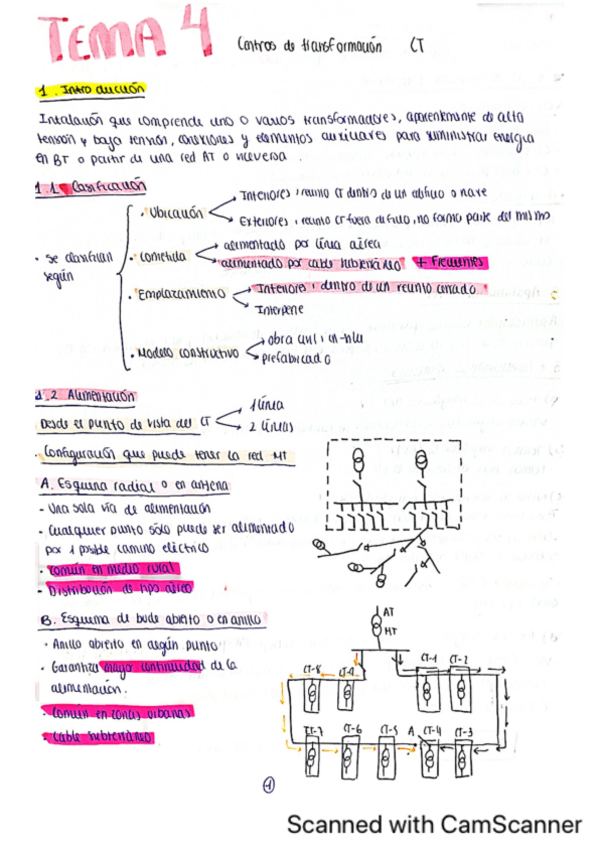 TEMA 4 Centros de transformación CT
1. Introducción
Instalación que comprende uno o varios transformadores, aparenkmenk de alta
tensión y baja tensión, conexiones y elementos auxiliares para suministrar energía
en BT a partir de una red AT o viceversa.
1.1. Clasificación
· se clasifican
según
· Ubicación
Interiores: recinto CT dentro de un edificio o nave
Exteriores: recinto CT fuera edificio, no forma parte del mismo
· Acometida
alimentado por línea aérea
alimentado por cable subterráneo + Frecuentes
· Emplazamiento
Interiores: dentro de un recinto cerrado.
Intemperie
· Modelo constructivo
obra civil: in-situ
prefabricado
1.2 Alimentación
Desde el punto de vista del CT
1 línea
2 líneas
· Configuración que puede tener la red MT
A. Esquema radial o en antena
- Una sola vía de alimentación
- Cualquier punto sólo puede ser alimentado
por 1 posible camino eléctrico
- común en medio rural
- Distribución de tipo aéreo
B. Esquema de bucle abierto o en anillo
· Anillo abierto en algún punto
· Garantiza mayor continuidad de la
alimentación.
· Común en zonas urbanas
· Cable subterráneo
AT
MT
CT-8 CT-9 CT-1 CT-2
CT-7 CT-6 CT-5 A CT-4 CT-3
1
Scanned with CamScanner